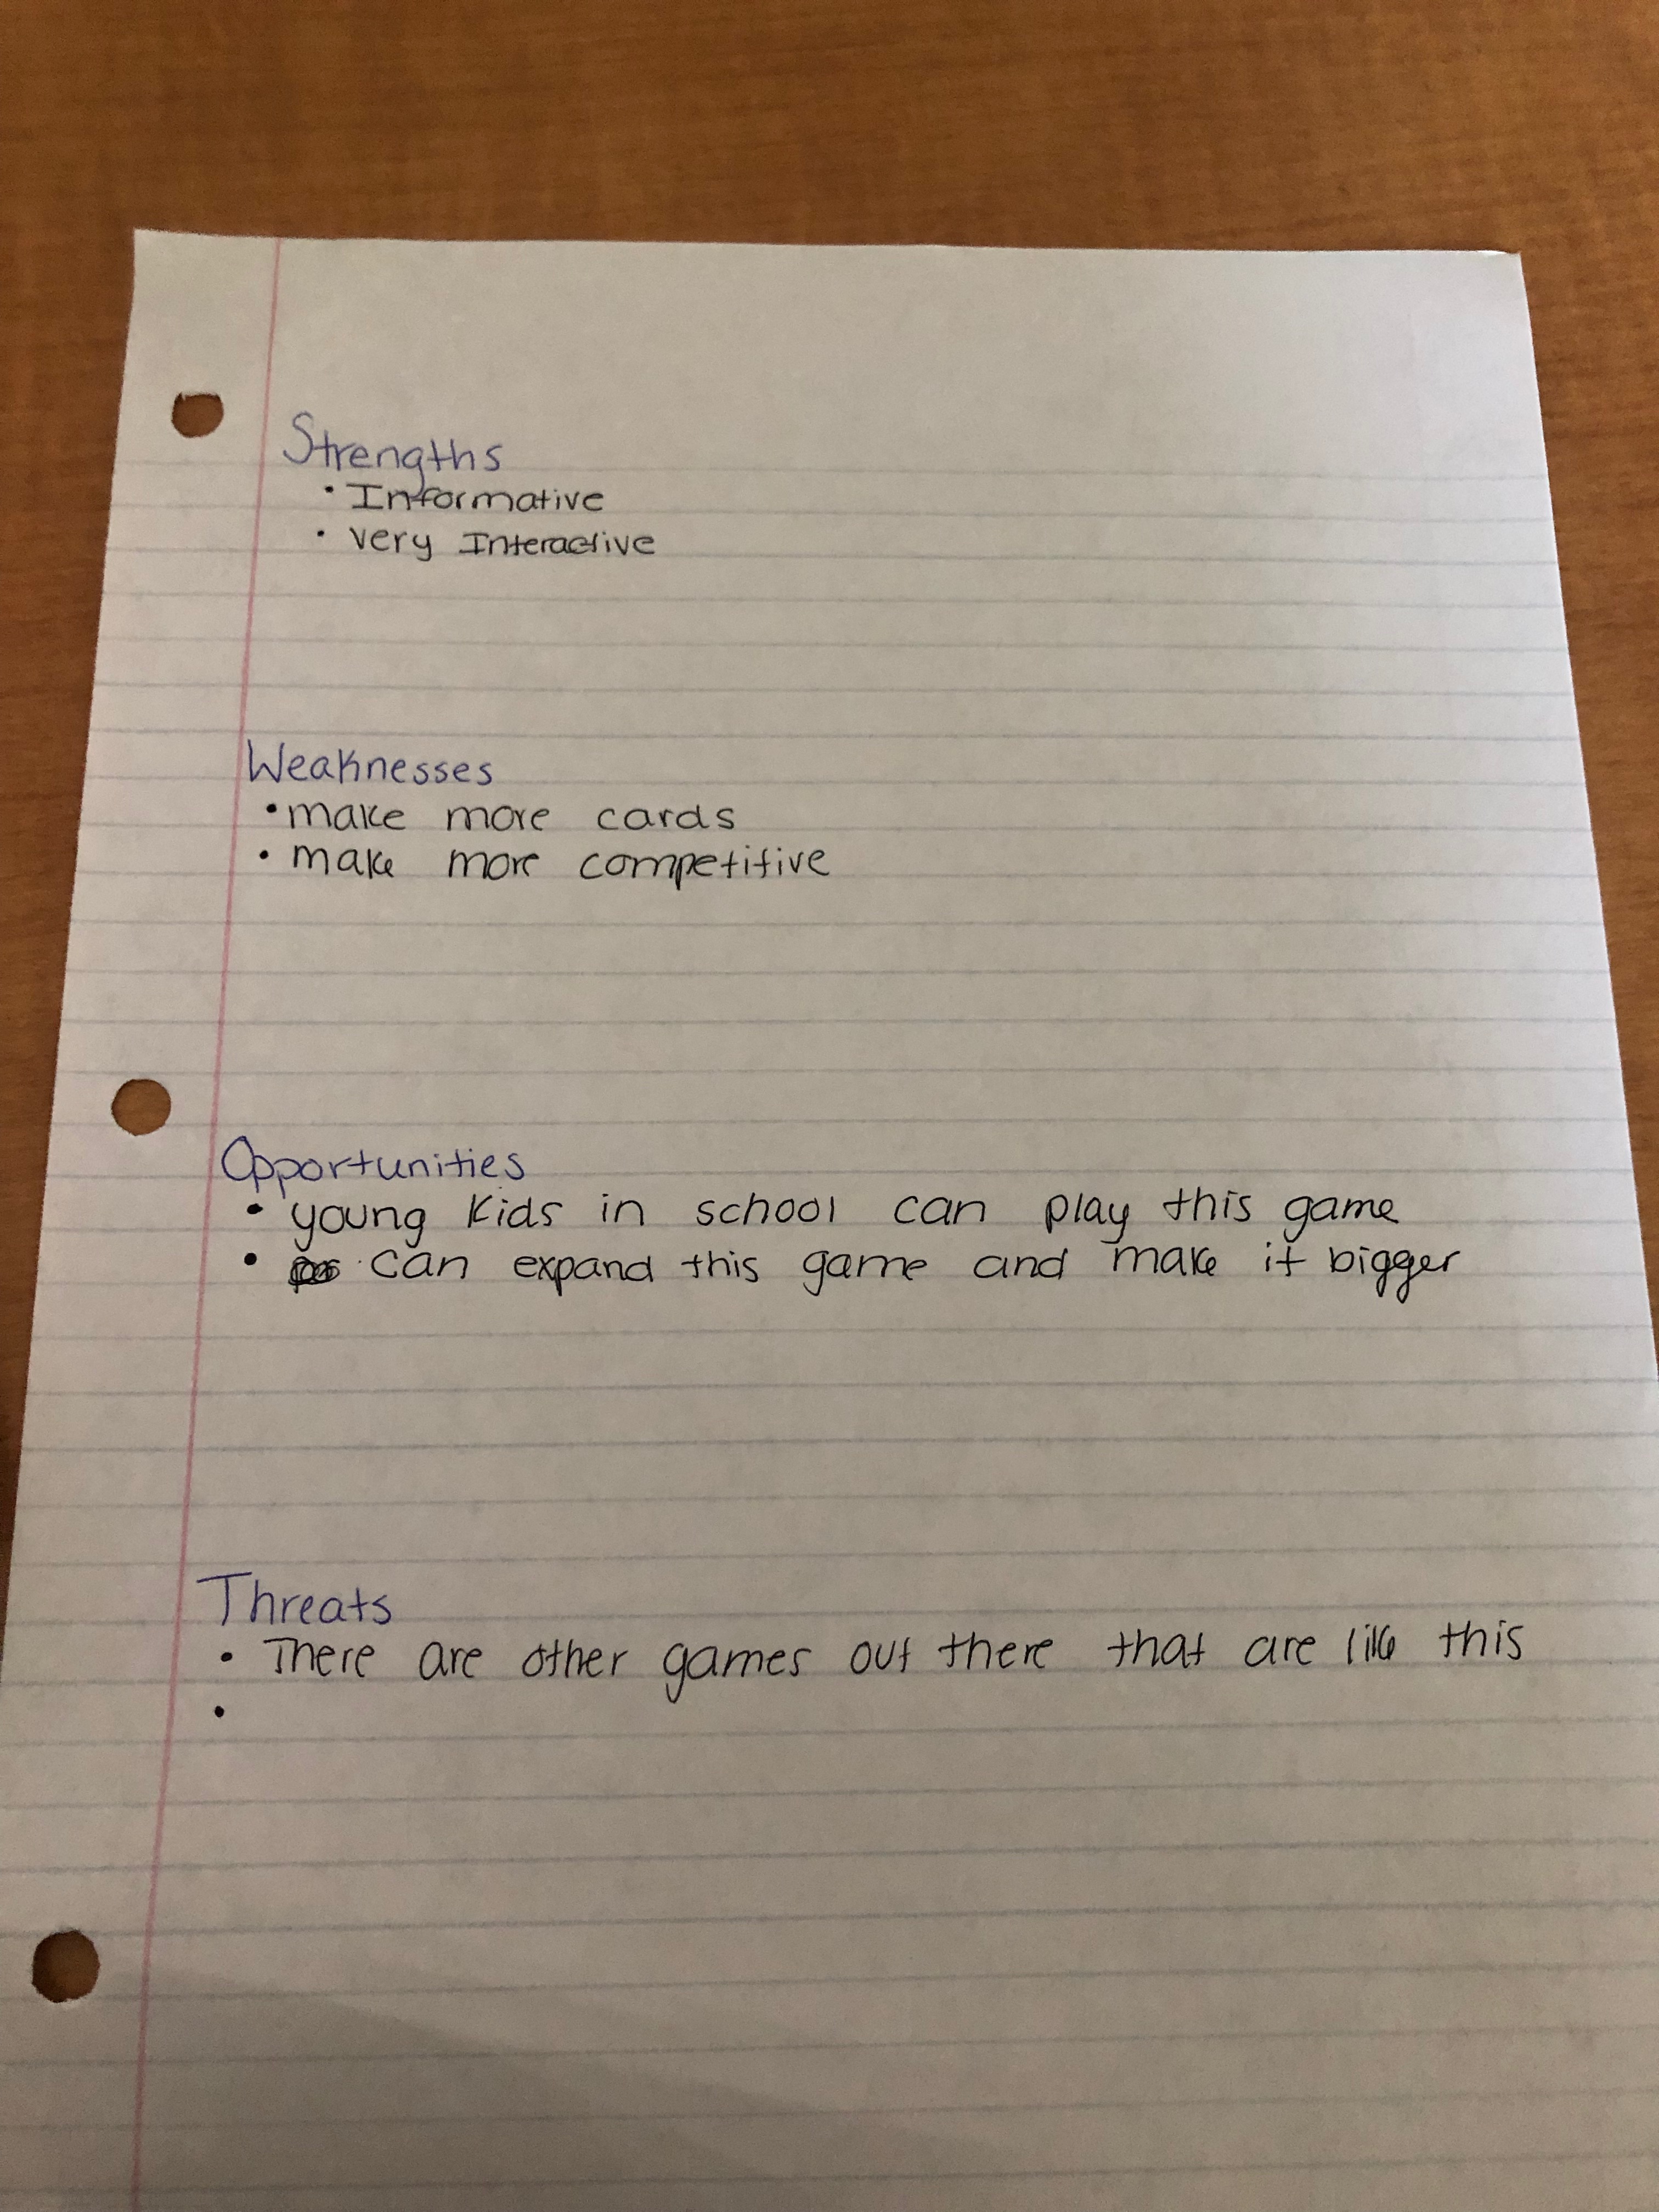 Strengths
• Informative
• very Interactive
Weaknesses
• make more cards
• make more competitive
Opportunities
• young kids in school can play this game
• can expand this game and make it bigger
Threats
• There are other games out there that are like this
•